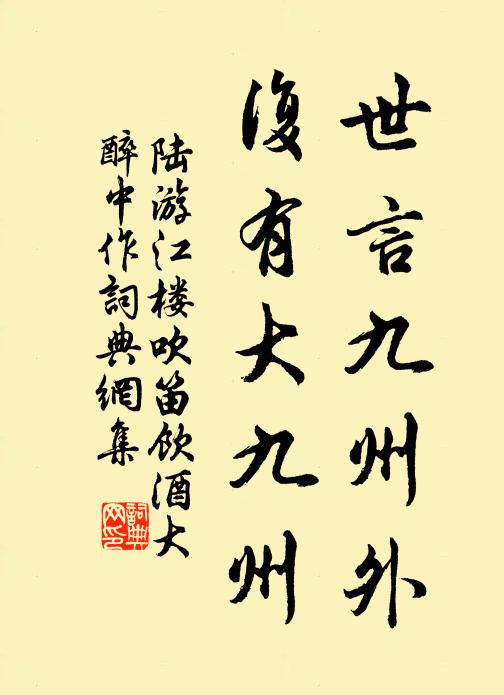 世言九州外
復有大九州
陆游江楼吹笛飲酒大
醉中作詞典網集
詞典
网印